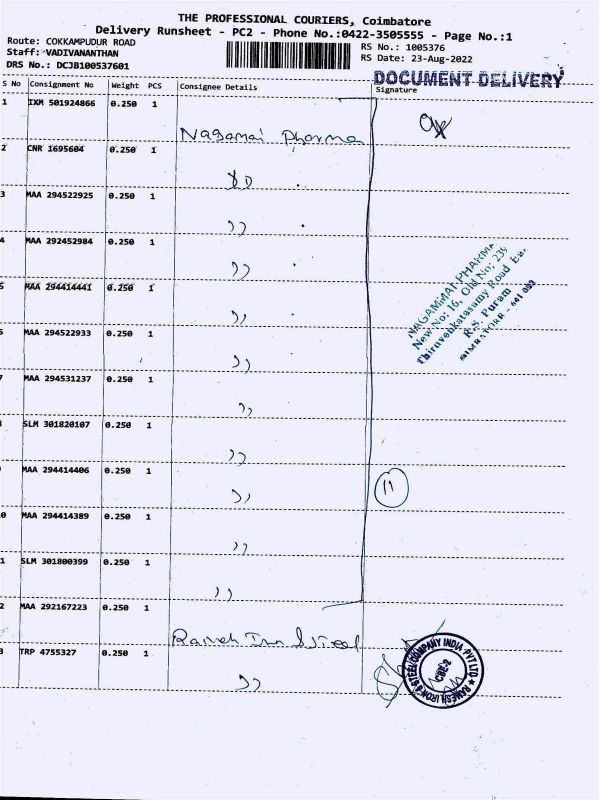 THE PROFESSIONAL COURIERS, Coimbatore
Delivery Runsheet - PC2 - Phone No.:0422-3505555 - Page No.:1
Route: COKKAMPUDUR ROAD
Staff: VADIVANANTHAN
DRS No.: DCJB100537601
RS No.: 1005376
RS Date: 23-Aug-2022
DOCUMENT DELIVERY
S No Consignment No Weight PCS Consignee Details Signature
1 IXM 501924866 0.250 1
Nagamai Pharma
2 CNR 1695604 0.250 1
3 MAA 294522925 0.250 1
,,
4 MAA 292452984 0.250 1
,,
5 MAA 294414441 0.250 1
,,
6 MAA 294522933 0.250 1
,,
7 MAA 294531237 0.250 1
,,
SLM 301820107 0.250 1
,,
MAA 294414406 0.250 1
,,
0 MAA 294414389 0.250 1
,,
1 SLM 301800399 0.250 1
,,
2 MAA 292167223 0.250 1
3 TRP 4755327 0.250 1
,,
NAGAMMAI PHARMA
New No: 16, Old No: 239
Thiruvenkatasamy Road
R.S. Puram
11
RAMESH IRON & STEEL COMPANY INDIA PVT LTD
CBE-2